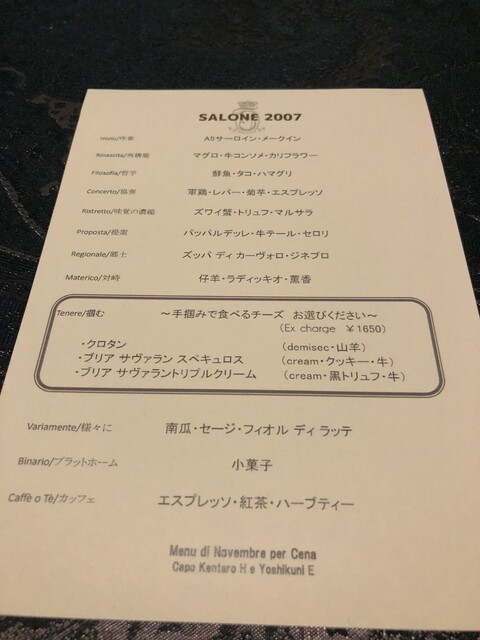 SALONE 2007
Inizio/序章 A5サーロイン・メークイン
Rinascita/再構築 マグロ・牛コンソメ・カリフラワー
Filosofia/哲学 鮮魚・タコ・ハマグリ
Concerto/協奏 軍鶏・レバー・菊芋・エスプレッソ
Ristretto/味覚の濃縮 ズワイ蟹・トリュフ・マルサラ
Proposta/提案 パッパルデッレ・牛テール・セロリ
Regionale/郷土 ズッパ ディ カーヴォロ・ジネプロ
Materico/対峙 仔羊・ラディッキオ・薫香
Tenere/掴む ～手掴みで食べるチーズ お選びください～
(Ex charge ￥1650)
・クロタン (demisec・山羊)
・ブリア サヴァラン スペキュロス (cream・クッキー・牛)
・ブリア サヴァラントリプルクリーム (cream・黒トリュフ・牛)
Variamente/様々に 南瓜・セージ・フィオル ディ ラッテ
Binario/プラットホーム 小菓子
Caffè o Tè/カッフェ エスプレッソ・紅茶・ハーブティー
Menu di Novembre per Cena
Capo Kentaro H e Yoshikuni E